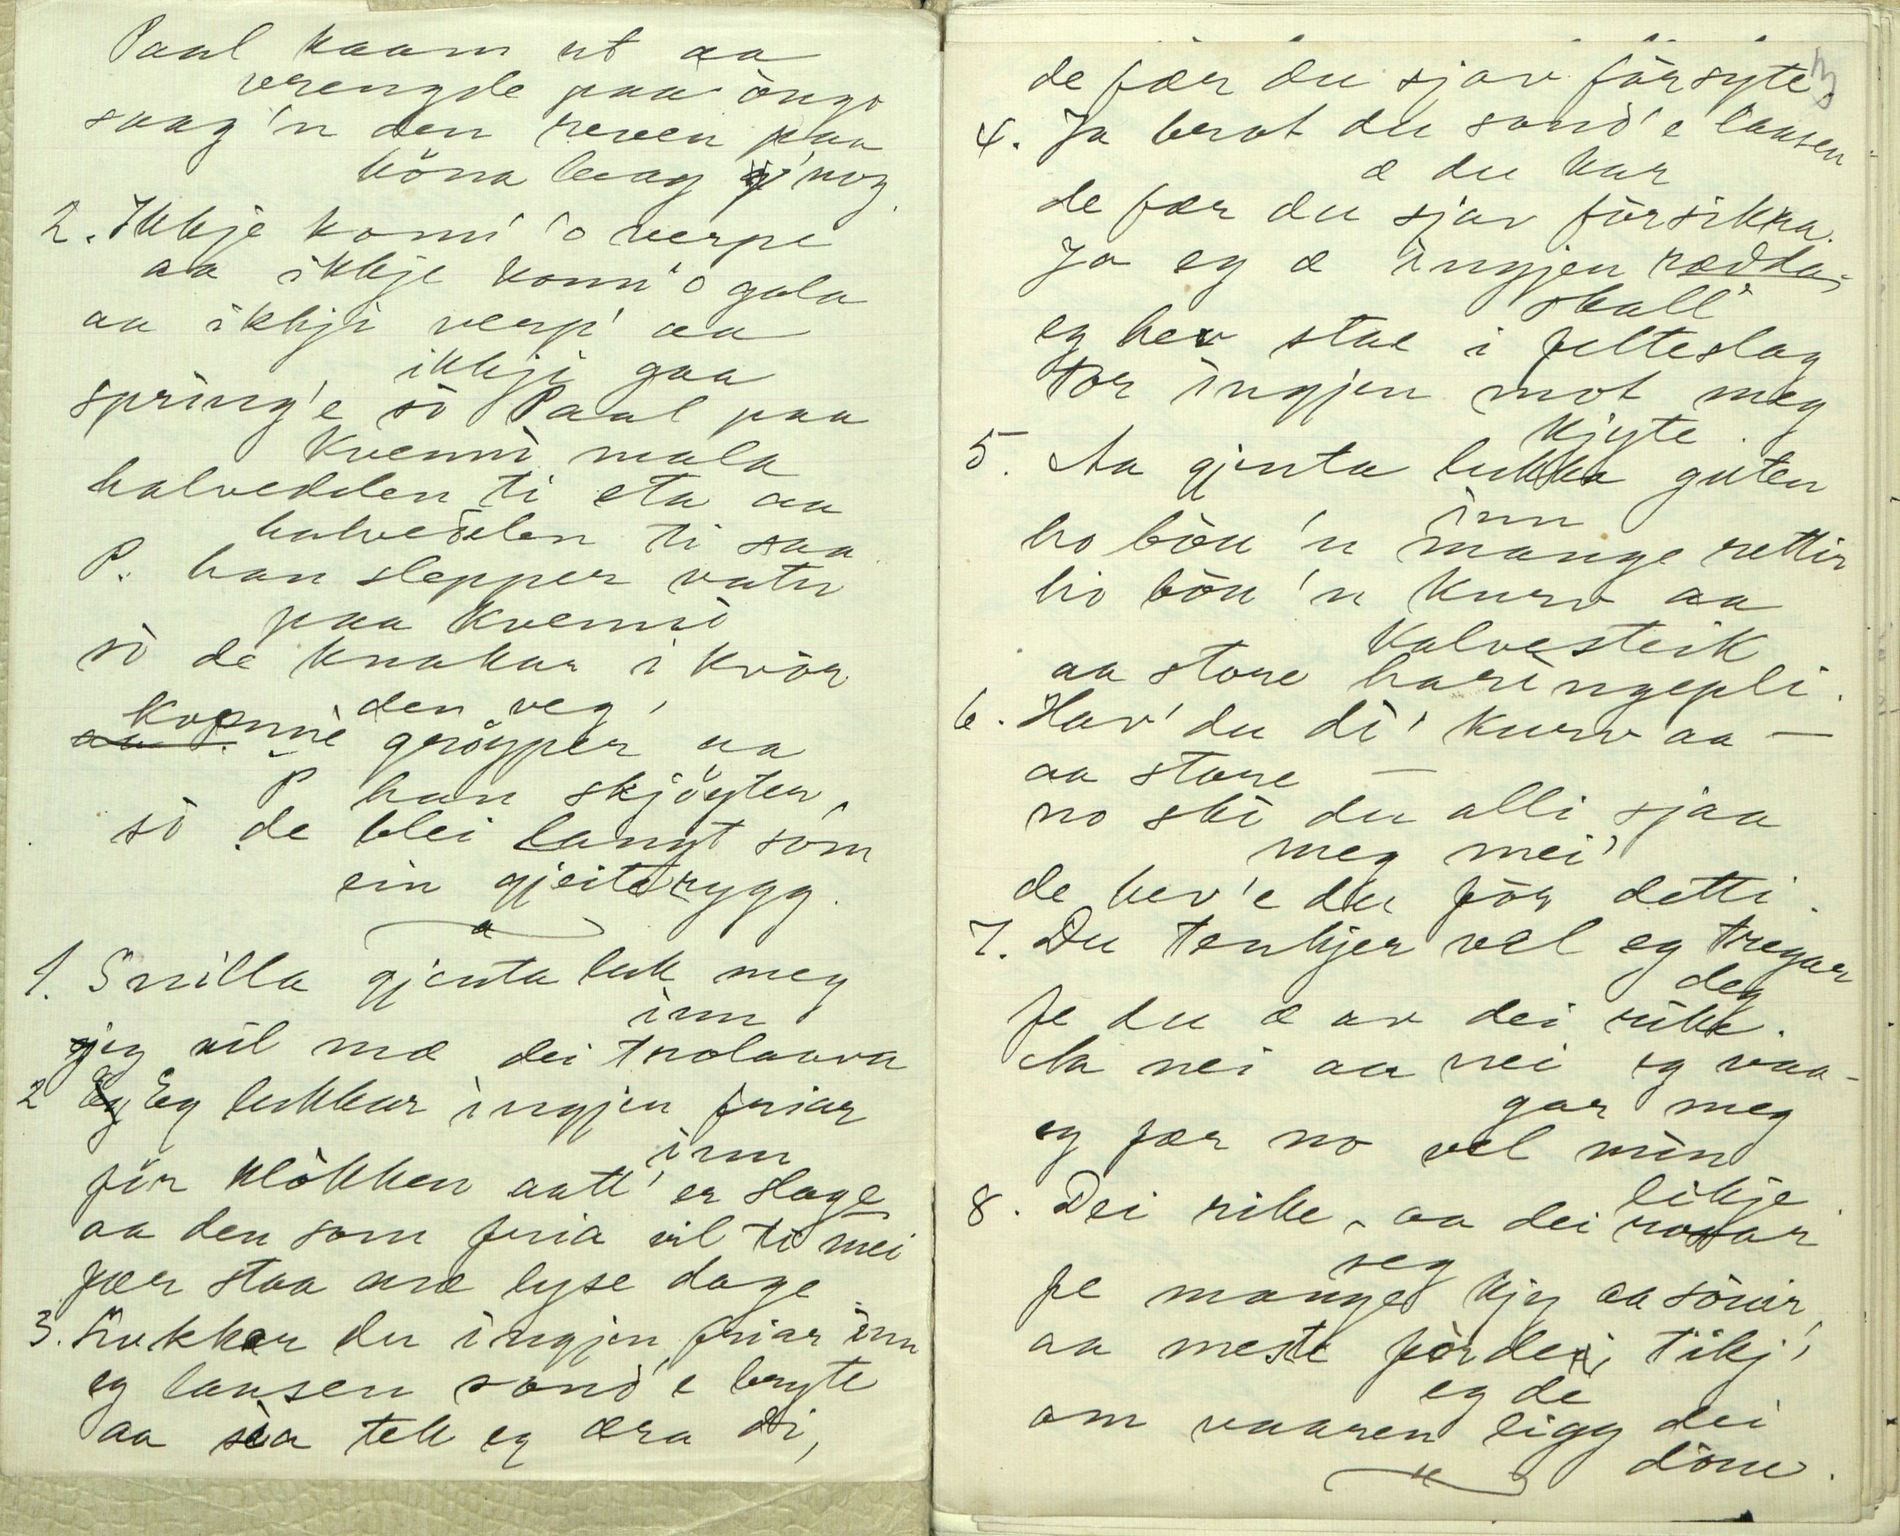 Paal kaam ut aa
vrengde paa òugo
saag 'n den reven paa
höna laag o' nog.
2. Ikkje konn' 'o verpe
aa ikkje konn' 'o gala
aa ikkji verp' aa
ikkji gaa
spring'e so Paal paa
kvenni mala
halvedelen ti eta aa
halvedelen ti saa
P. han slepper vatn
paa kvenni
so de knakar i kvör
den veg,
kvenni gröypper aa
P han skjöyter
so de blei langt som
ein gjeiterygg.
1. Snilla gjenta luk meg
inn
jeg vil mæ dei trolaava
2 Eg lukkar ingjen friar
inn
för klokken aatt' er slage
aa den som fria vil ti mei
fær staa mæ lyse dage
3. Lukkar du ingjen friar inn
eg laasen sond'e bryte
aa sia tek eg æra di,
de fær du sjav försyte.
4. Ja brot du sond'e laasen
æ du kar
de fær du sjav försikra.
Jo eg æ ingjen rædda-
skall'
eg hev stae i felteslag
tor ingjen mot meg
kjyte.
5. Aa gjenta lukka guten
inn
ho böu 'n mange rettir
ho böu 'n kurv aa
kalvesteik
aa store haringepli.
6. Hav' du di' kurv aa —
aa store —
no ski du alli sjaa
meg mei'
de hev'e du för detti.
7. Du tenkjer vel eg tregar
deg
fe du æ av dei rike.
Aa nei aa nei eg vaa-
gar meg
eg fær no vel min
likje
8. Dei rike, aa dei rosar
seg
fe mange kjy aa souir,
aa meste fördei, tikj'
eg de
om vaaren ligg dei
döue.